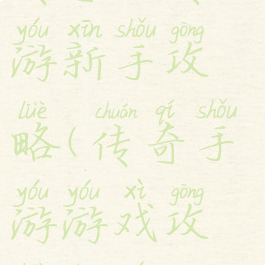 yóu xīn shǒu gōng
游新手攻
lüè ( chuán qí shǒu
略(传奇手
yóu yóu xì gōng
游游戏攻